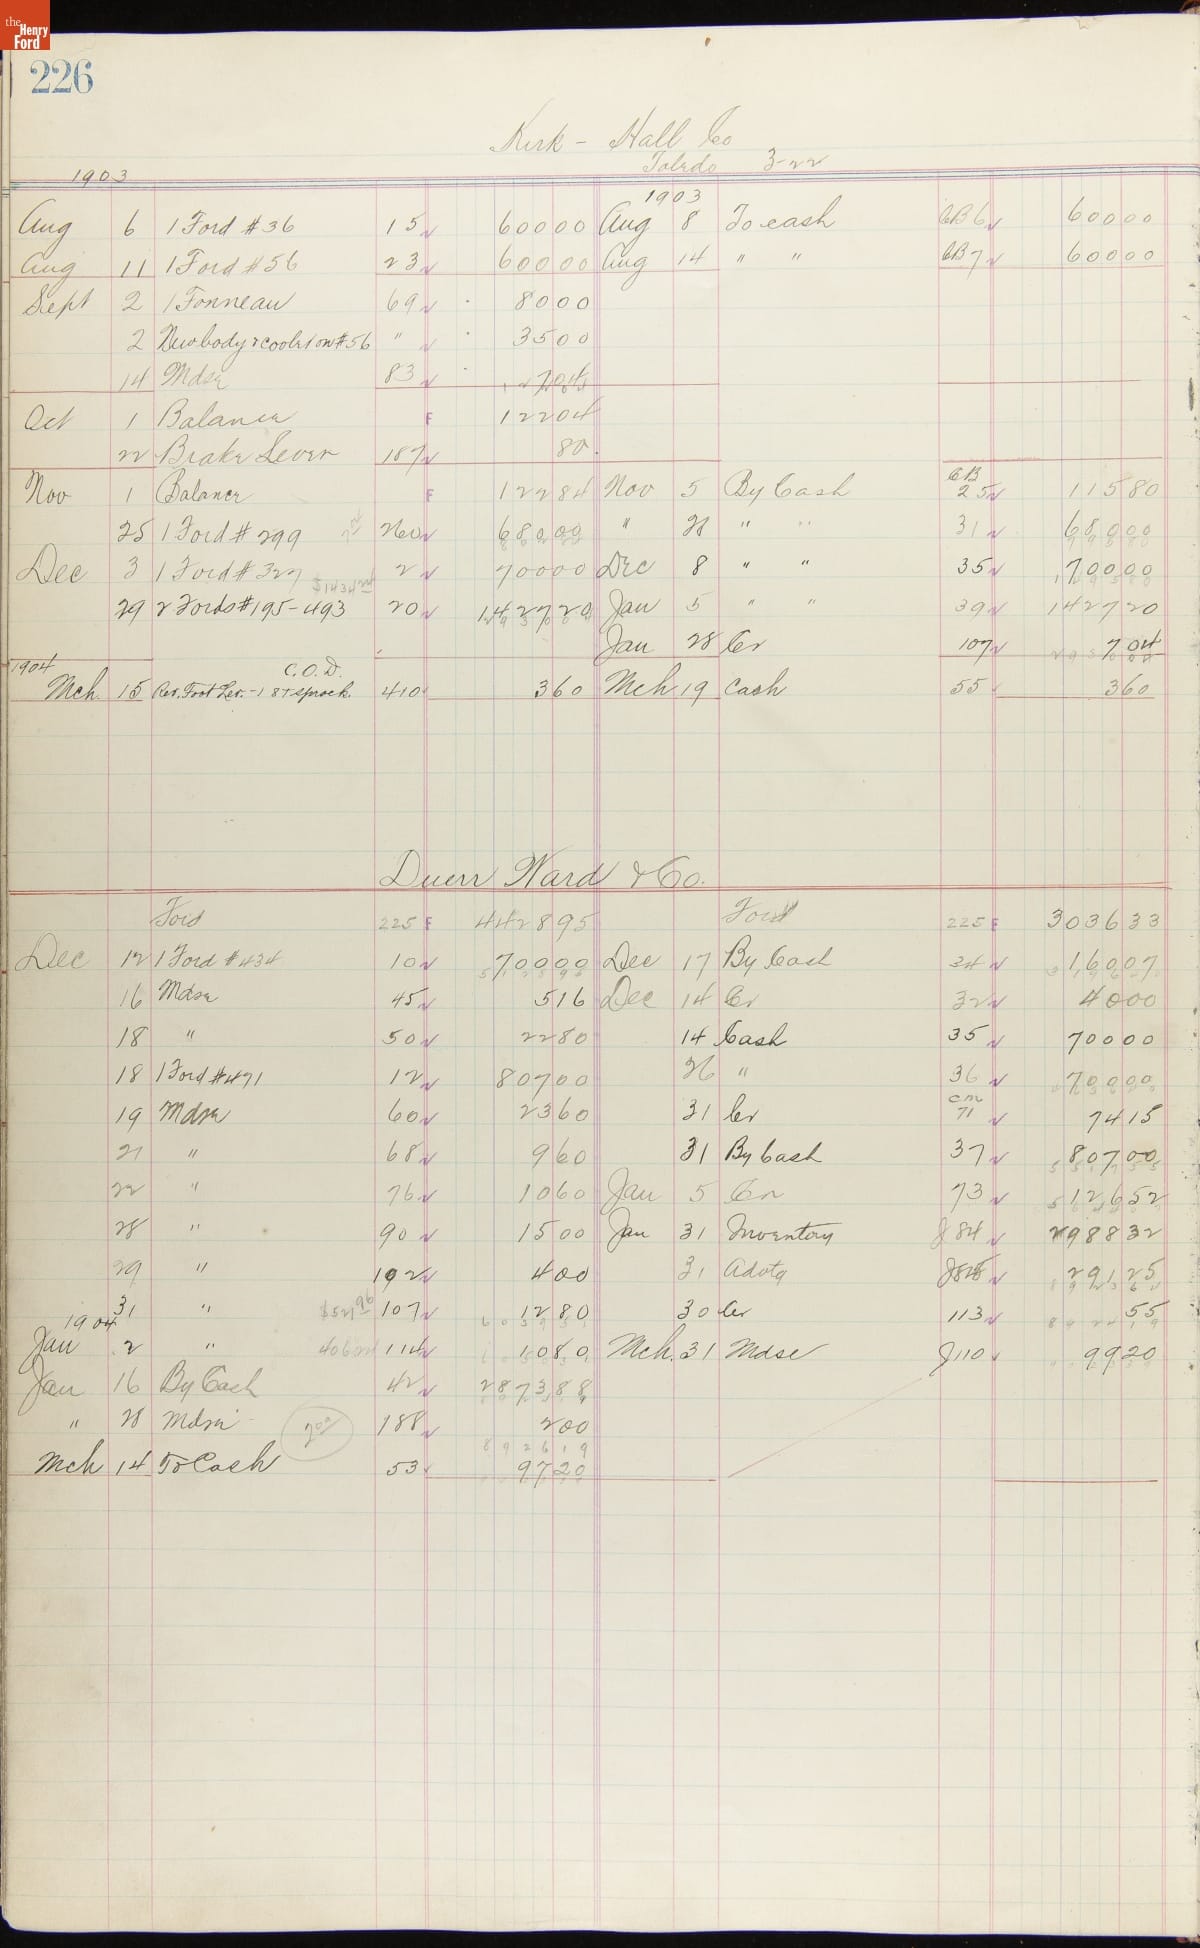 the Henry Ford
226
Kirk - Hall Co
Toledo 3-22
1903 1903
Aug 6 1 Ford #36 15 60000 Aug 8 To cash CB6 60000
Aug 11 1 Ford #56 23 60000 Aug 14 " " CB7 60000
Sept 2 1 Tonneau 69 8000
2 New body & cooler on #56 " 3500
14 Mdse 83 704
Oct 1 Balance F 12204
22 Brake Lever 187 80
Nov 1 Balance F 12284 Nov 5 By Cash CB 25 11580
25 1 Ford # 299 260 68000 " 28 " " 31 68000
Dec 3 1 Ford # 327 2 70000 Dec 8 " " 35 70000
$1434 24
29 2 Fords #195-493 20 142720 Jan 5 " " 39 142720
Jan 28 Cr 107 704
1904 C.O.D.
Mch 15 Rev. Foot Lev. - 1 8T sprock. 410 360 Mch 19 Cash 55 360
Duerr Ward & Co.
Ford 225 F 442895 Ford 225 F 303633
Dec 12 1 Ford #434 10 70000 Dec 17 By Cash 34 16007
16 Mdse 45 516 Dec 14 Cr 32 4000
18 " 50 2280 14 Cash 35 70000
18 1 Ford #471 12 80700 26 " 36 70000
19 Mdse 60 2360 31 Cr cm 71 7415
21 " 68 960 31 By Cash 37 80700
22 " 76 1060 Jan 5 Cr 73 12652
28 " 90 1500 Jan 31 Inventory J84 298832
29 " 102 400 31 Advtg 29125
31 " $521 96 107 1280 30 Cr 113 55
1904
Jan 2 " 114 1080 Mch. 31 Mdse J110 9920
Jan 16 By Cash 42 287388
" 28 Mdse 2 00 188 200
892619
Mch 14 To Cash 53 9720